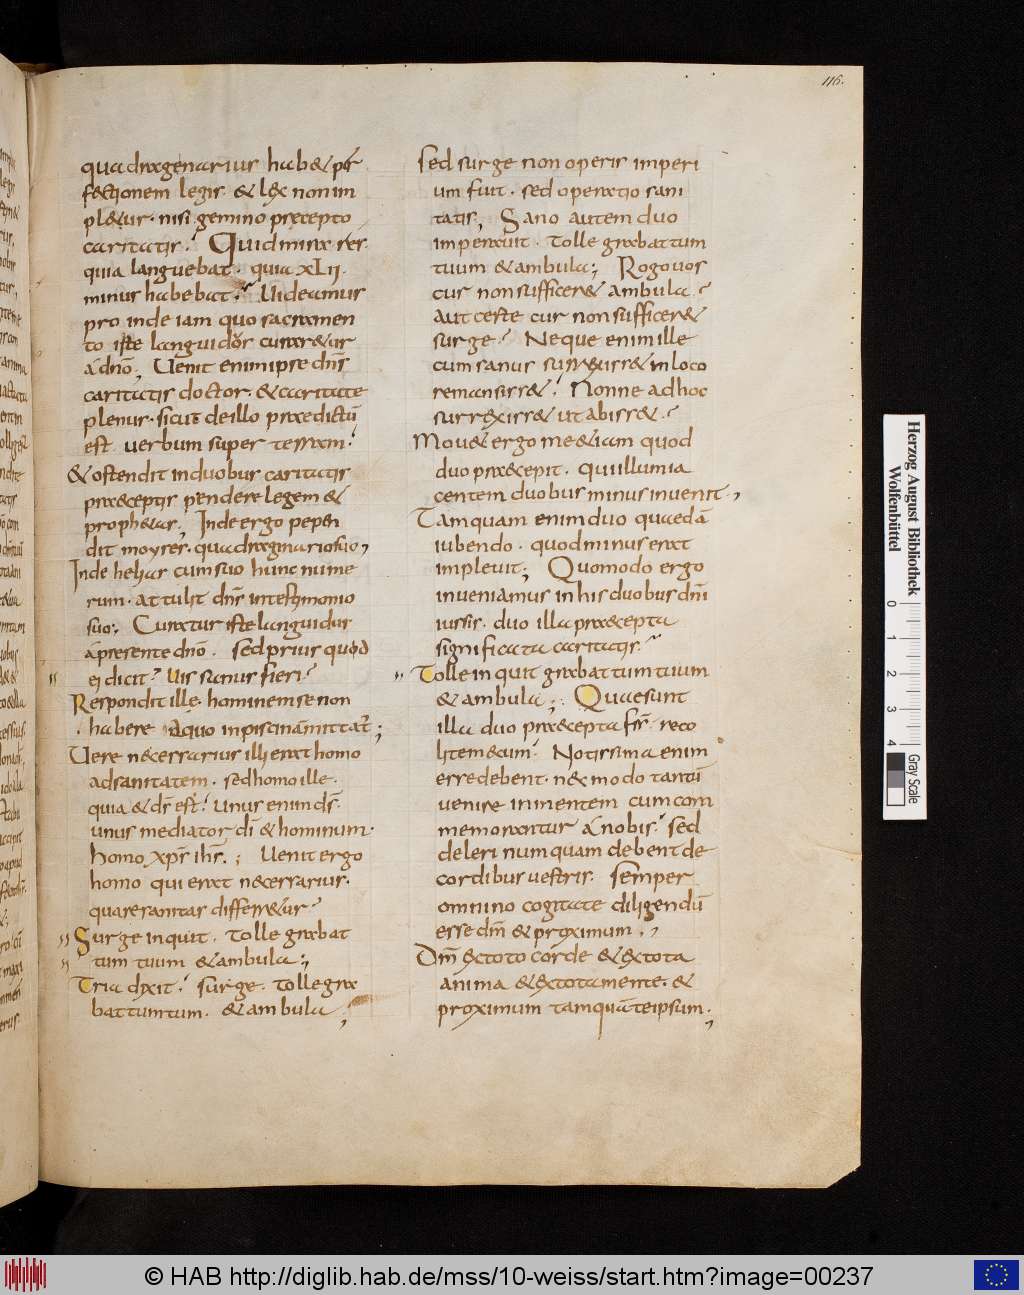 116.
quadragenarius habet per
fectionem legis. & lex non im
pletur. nisi gemino precepto
caritatis? Quid miraris
quia languebat. quia XLII.
minus habebat? Uideamus
pro inde iam quo sacramen
to iste languidus curaretur
a dño, Uenit enim ipse dñs
caritatis doctor. & caritate
plenus. sicut de illo praedictū
est. uerbum super terram?
& ostendit in duobus caritatis
praeceptis pendere legem &
prophetas, Inde ergo pepen
dit moyses. quadragenario suo,
Inde helias cum suo hunc nume
rum. attulit dñs in testimonio
suo; Curatur iste languidus
a presente dño. sed prius quod
ei dicit? Uis sanus fieri?
Respondit ille. hominem se non
habere a quo in piscinā mittat̄;
Uere necessarius illi erat homo
ad sanitatem. sed homo ille.
quia & ds̄ est? Unus enim ds̄.
unus mediator dī & hominum.
homo xp̄s ih̄s.; Uenit ergo
homo qui erat necessarius.
quare sanitas differretur?
Surge inquit. tolle grabat
tum tuum & ambula;
Tria dixit? surge. tolle gra
battum tuum. & ambula;
sed surge non operis imperi
um fuit. sed operatio sani
tatis, Sano autem duo
imperauit. Tolle grabattum
tuum & ambula; Rogo uos
cur non sufficeret ambula?
aut certe cur non sufficeret
surge? Neque enim ille
cum sanus surrexisset in loco
remansisset? Nonne ad hoc
surrexisset ut abisset?
Mouet ergo me etiam quod
duo praecepit. qui illum ia
centem duobus minus inuenit,
Tamquam enim duo quaedā
iubendo. quod minus erat
impleuit; Quomodo ergo
inueniamus in his duobus dñi
iussis. duo illa praecepta
significata caritatis?
Tolle inquit grabattum tuum
& ambula; Quae sunt
illa duo praecepta fr̄s. reco
lite mecum? Notissima enim
esse debent. nec modo tantū
uenire in mentem cum com
memorantur a nobis? sed
deleri numquam debent de
cordibus uestris. semper
omnino cogitate diligendū
esse dm̄ & proximum.,
Dm̄ ex toto corde & ex tota
anima & ex tota mente. &
proximum tamquā te ipsum.,
Herzog August Bibliothek
Wolfenbüttel
0 1 2 3 4
Gray Scale
© HAB http://diglib.hab.de/mss/10-weiss/start.htm?image=00237